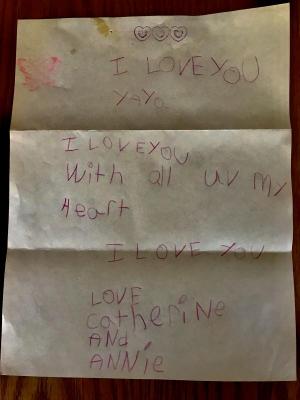 I LOVE YOU
YaYa
I LOVE YOU
With all uv my
Heart
I LOVE YOU
LOVE
catheriNe
ANd
ANNie